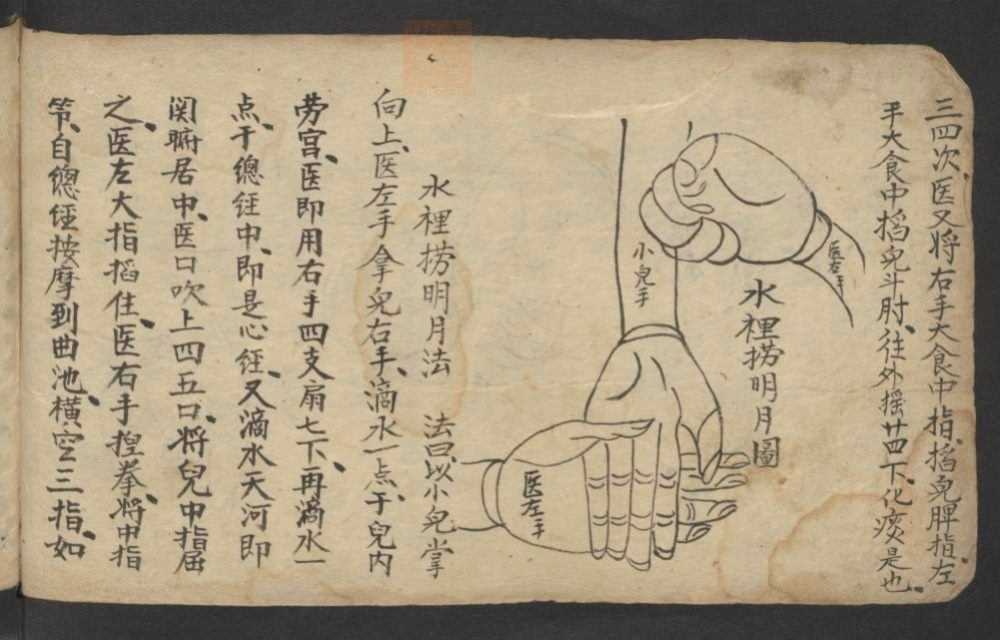 三四次、医又将右手大食中指、搯兒脾指左
手大食中搯兒斗肘、往外摇廿四下、化痰是也、
水裡捞明月圖
医右手
小兒手
医左手
水裡捞明月法 法曰以小兒掌
向上、医左手拿兒右手、滴水一点、于兒内
劳宫、医即用右手四支扇七下、再滴水一
点、于總経中、即是心経、又滴水天河即
関腑居中、医口吹上四五口、将兒中指屈
之、医左大指搯住、医右手揑拳、将中指
節、自總経按摩到曲池、横空三指、如